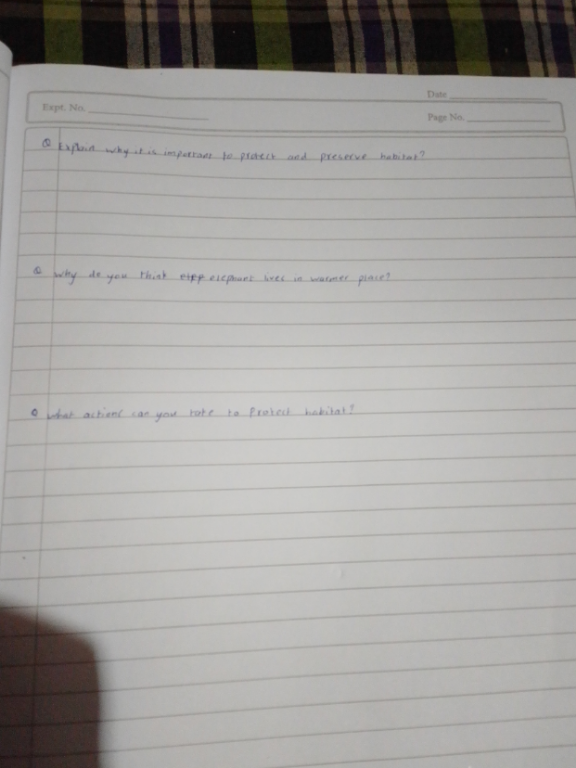 Date
Expt. No.
Page No.
Q Explain why it is important to protect and preserve habitat?
Q why do you think elephant lives in warmer place?
Q what actions can you take to Protect habitat?